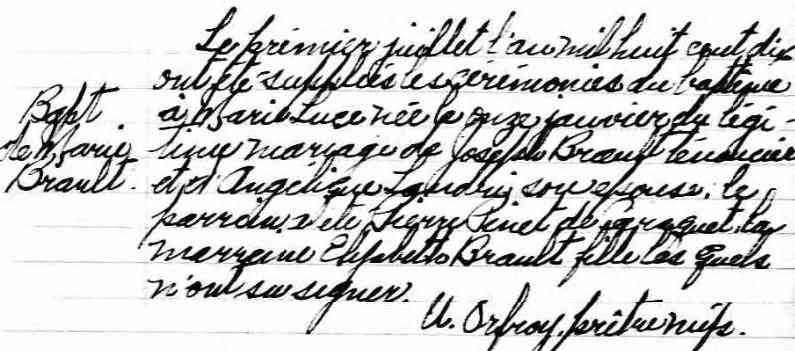 Le prémier juillet l'an mil huit cent dix
ont été suppléés les cérémonies du baptême
Bapt
de Marie
Brault.
à Marie Luce née le onze janvier du légi-
time mariage de Joseph Brault tenancier
et d'Angélique Landry son épouse; le
parrain a été Pierre Pinet de Caraquet, la
marraine Elisabeth Brault fille les quels
n'ont su signer.
U. Orfroy, prêtre miss.